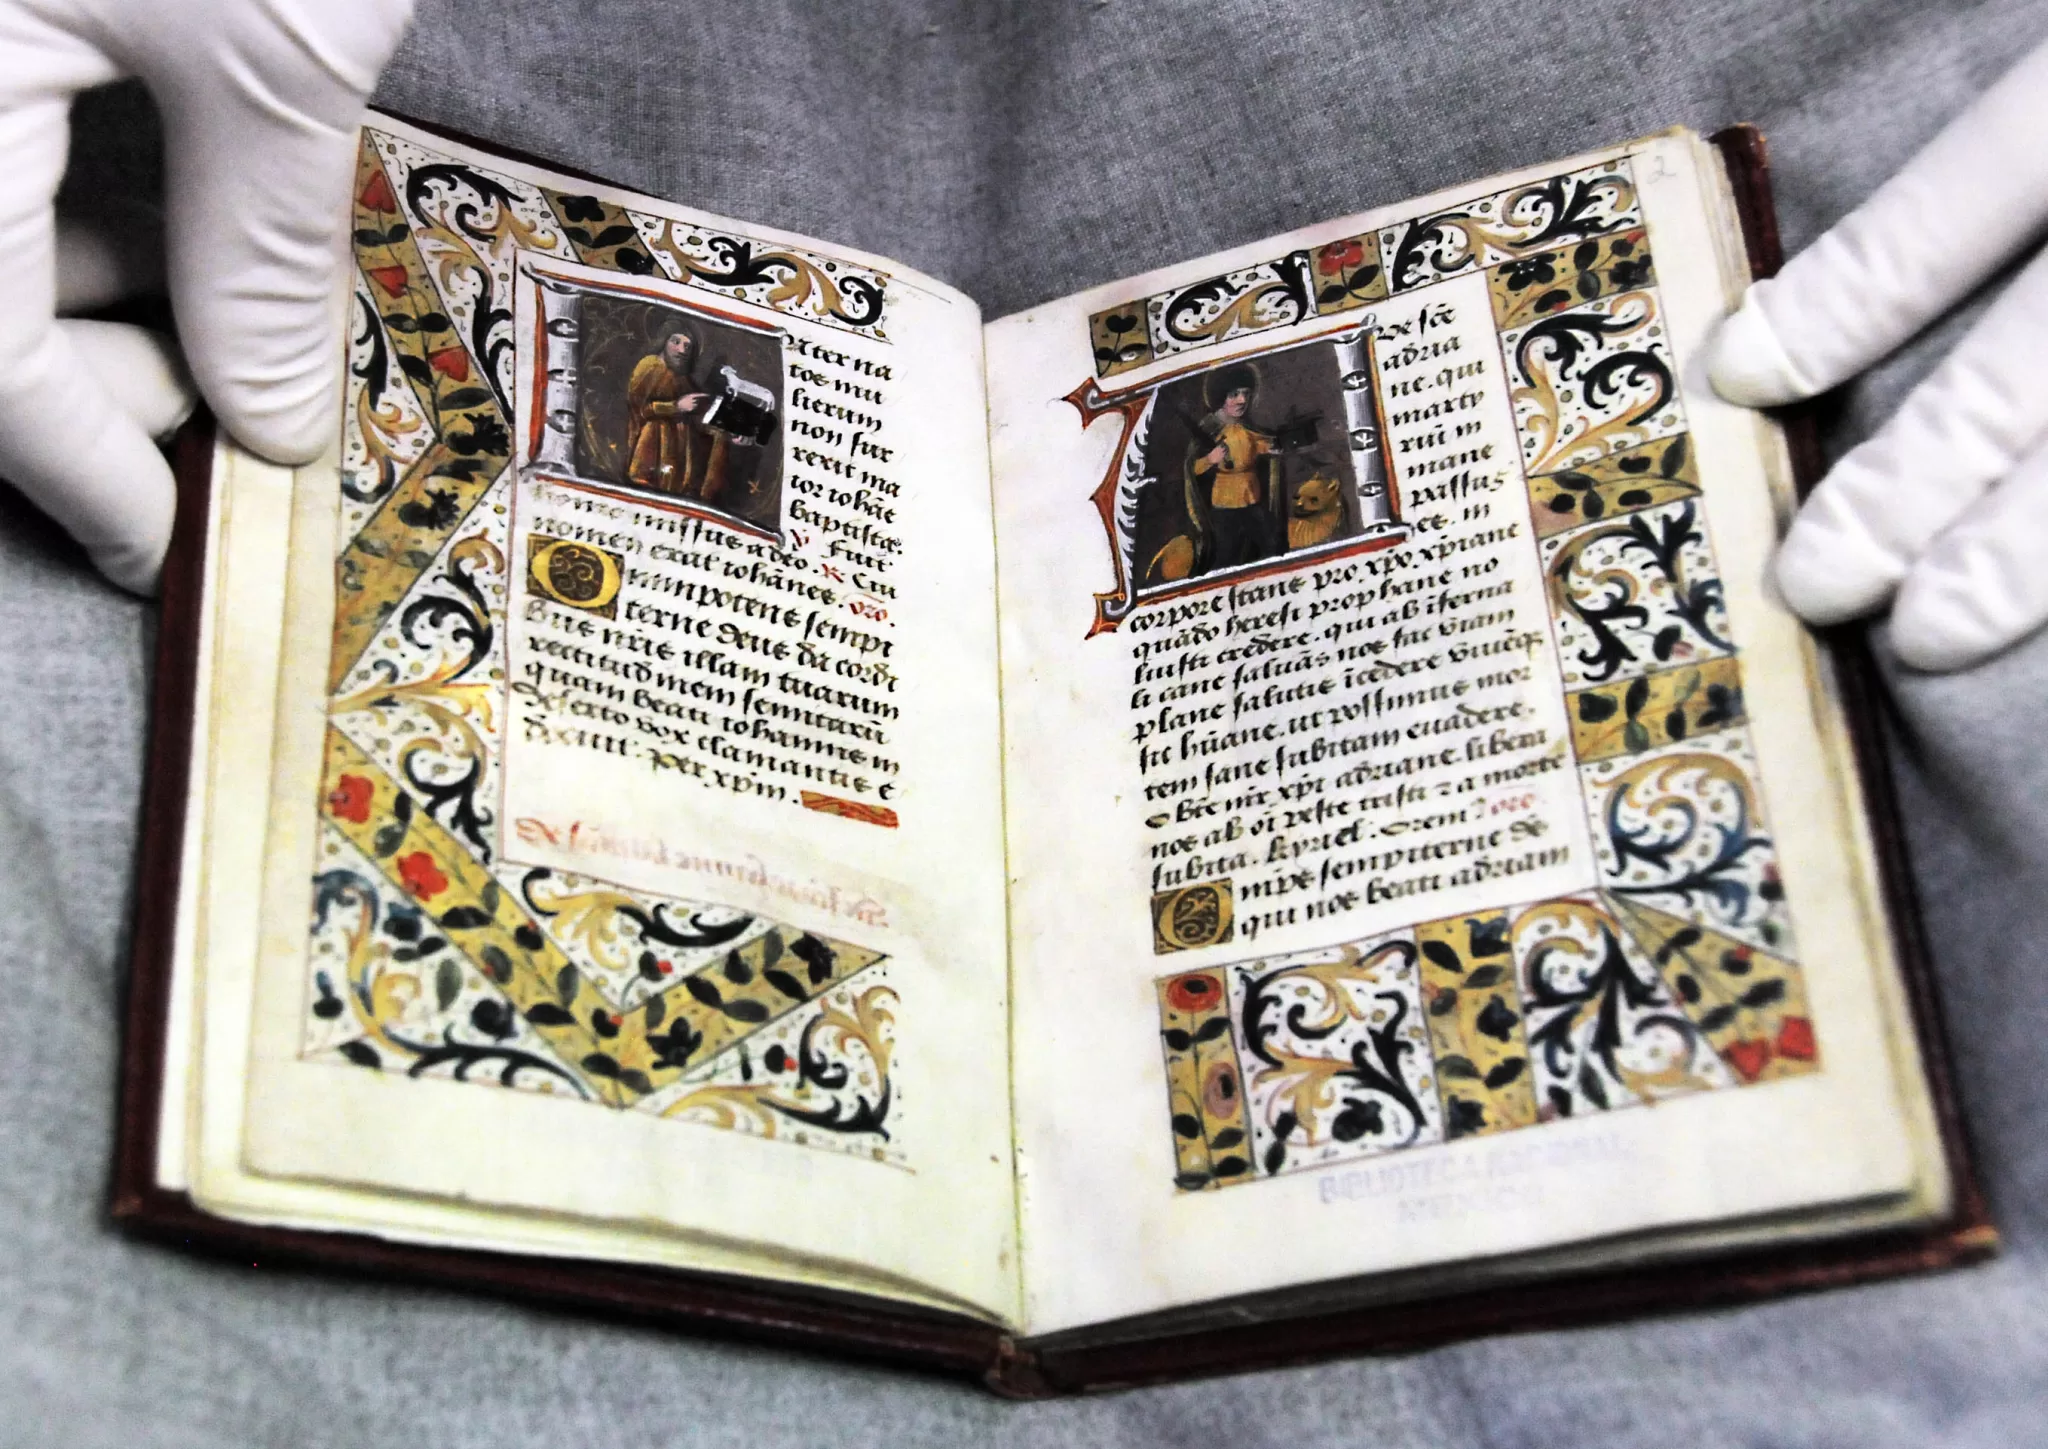 nter na
tos mu
lierum
non sur
rexit ma
ior iohāe
baptista.
℣ fuit
homo missus a deo. ℟ Cui
nomen erat iohānes. oro.
Omnipotens sempi
terne deus da cordi
bus nr̄is illam tuarum
rectitudinem semitarū
quam beati iohannis in
deserto vox clamantis e
dixit. per xp̄m.
2
Ave sc̄e
adria
ne. qui
marty
riū in
mane
passus
es. in
corpore stans pro xp̄o xp̄iane
quādo heresi prophane no
luisti credere. qui ab iferna
li cane saluās nos fac viam
plane salutis īcedere
sic hūane. ut possimus mor
tem sane subitam euadere.
O bt̄e mr̄ xp̄i adriane. libera
nos ab oī peste tristi ⁊ a morte
subita. kyriel. Orem⁹ oro.
Omp̄s sempiterne ds̄
qui nos beati adriani
BIBLIOTECA NACIONAL
MEXICO